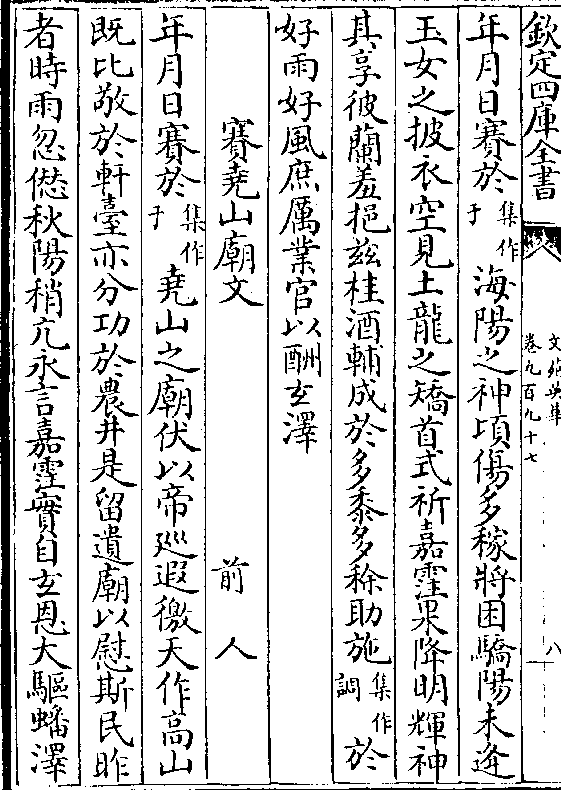 欽定四庫全書
文苑英華
卷九百九十七
八
年月日賽於集作于海陽之神頃傷多稼將困驕陽未逢
玉女之披衣空見土龍之矯首式祈嘉霔果降明輝神
其享彼蘭羞挹兹桂酒輔成於多黍多稌助施集作調於
好雨好風庶厲業官以酬玄澤
賽堯山廟文
前人
年月日賽於集作于堯山之廟伏以帝廵遐徼天作高山
既比敬於軒臺亦分功於農井是留遺廟以慰斯民昨
者時雨忽愆秋陽稍亢永言嘉霔實自玄恩大驅蟠澤